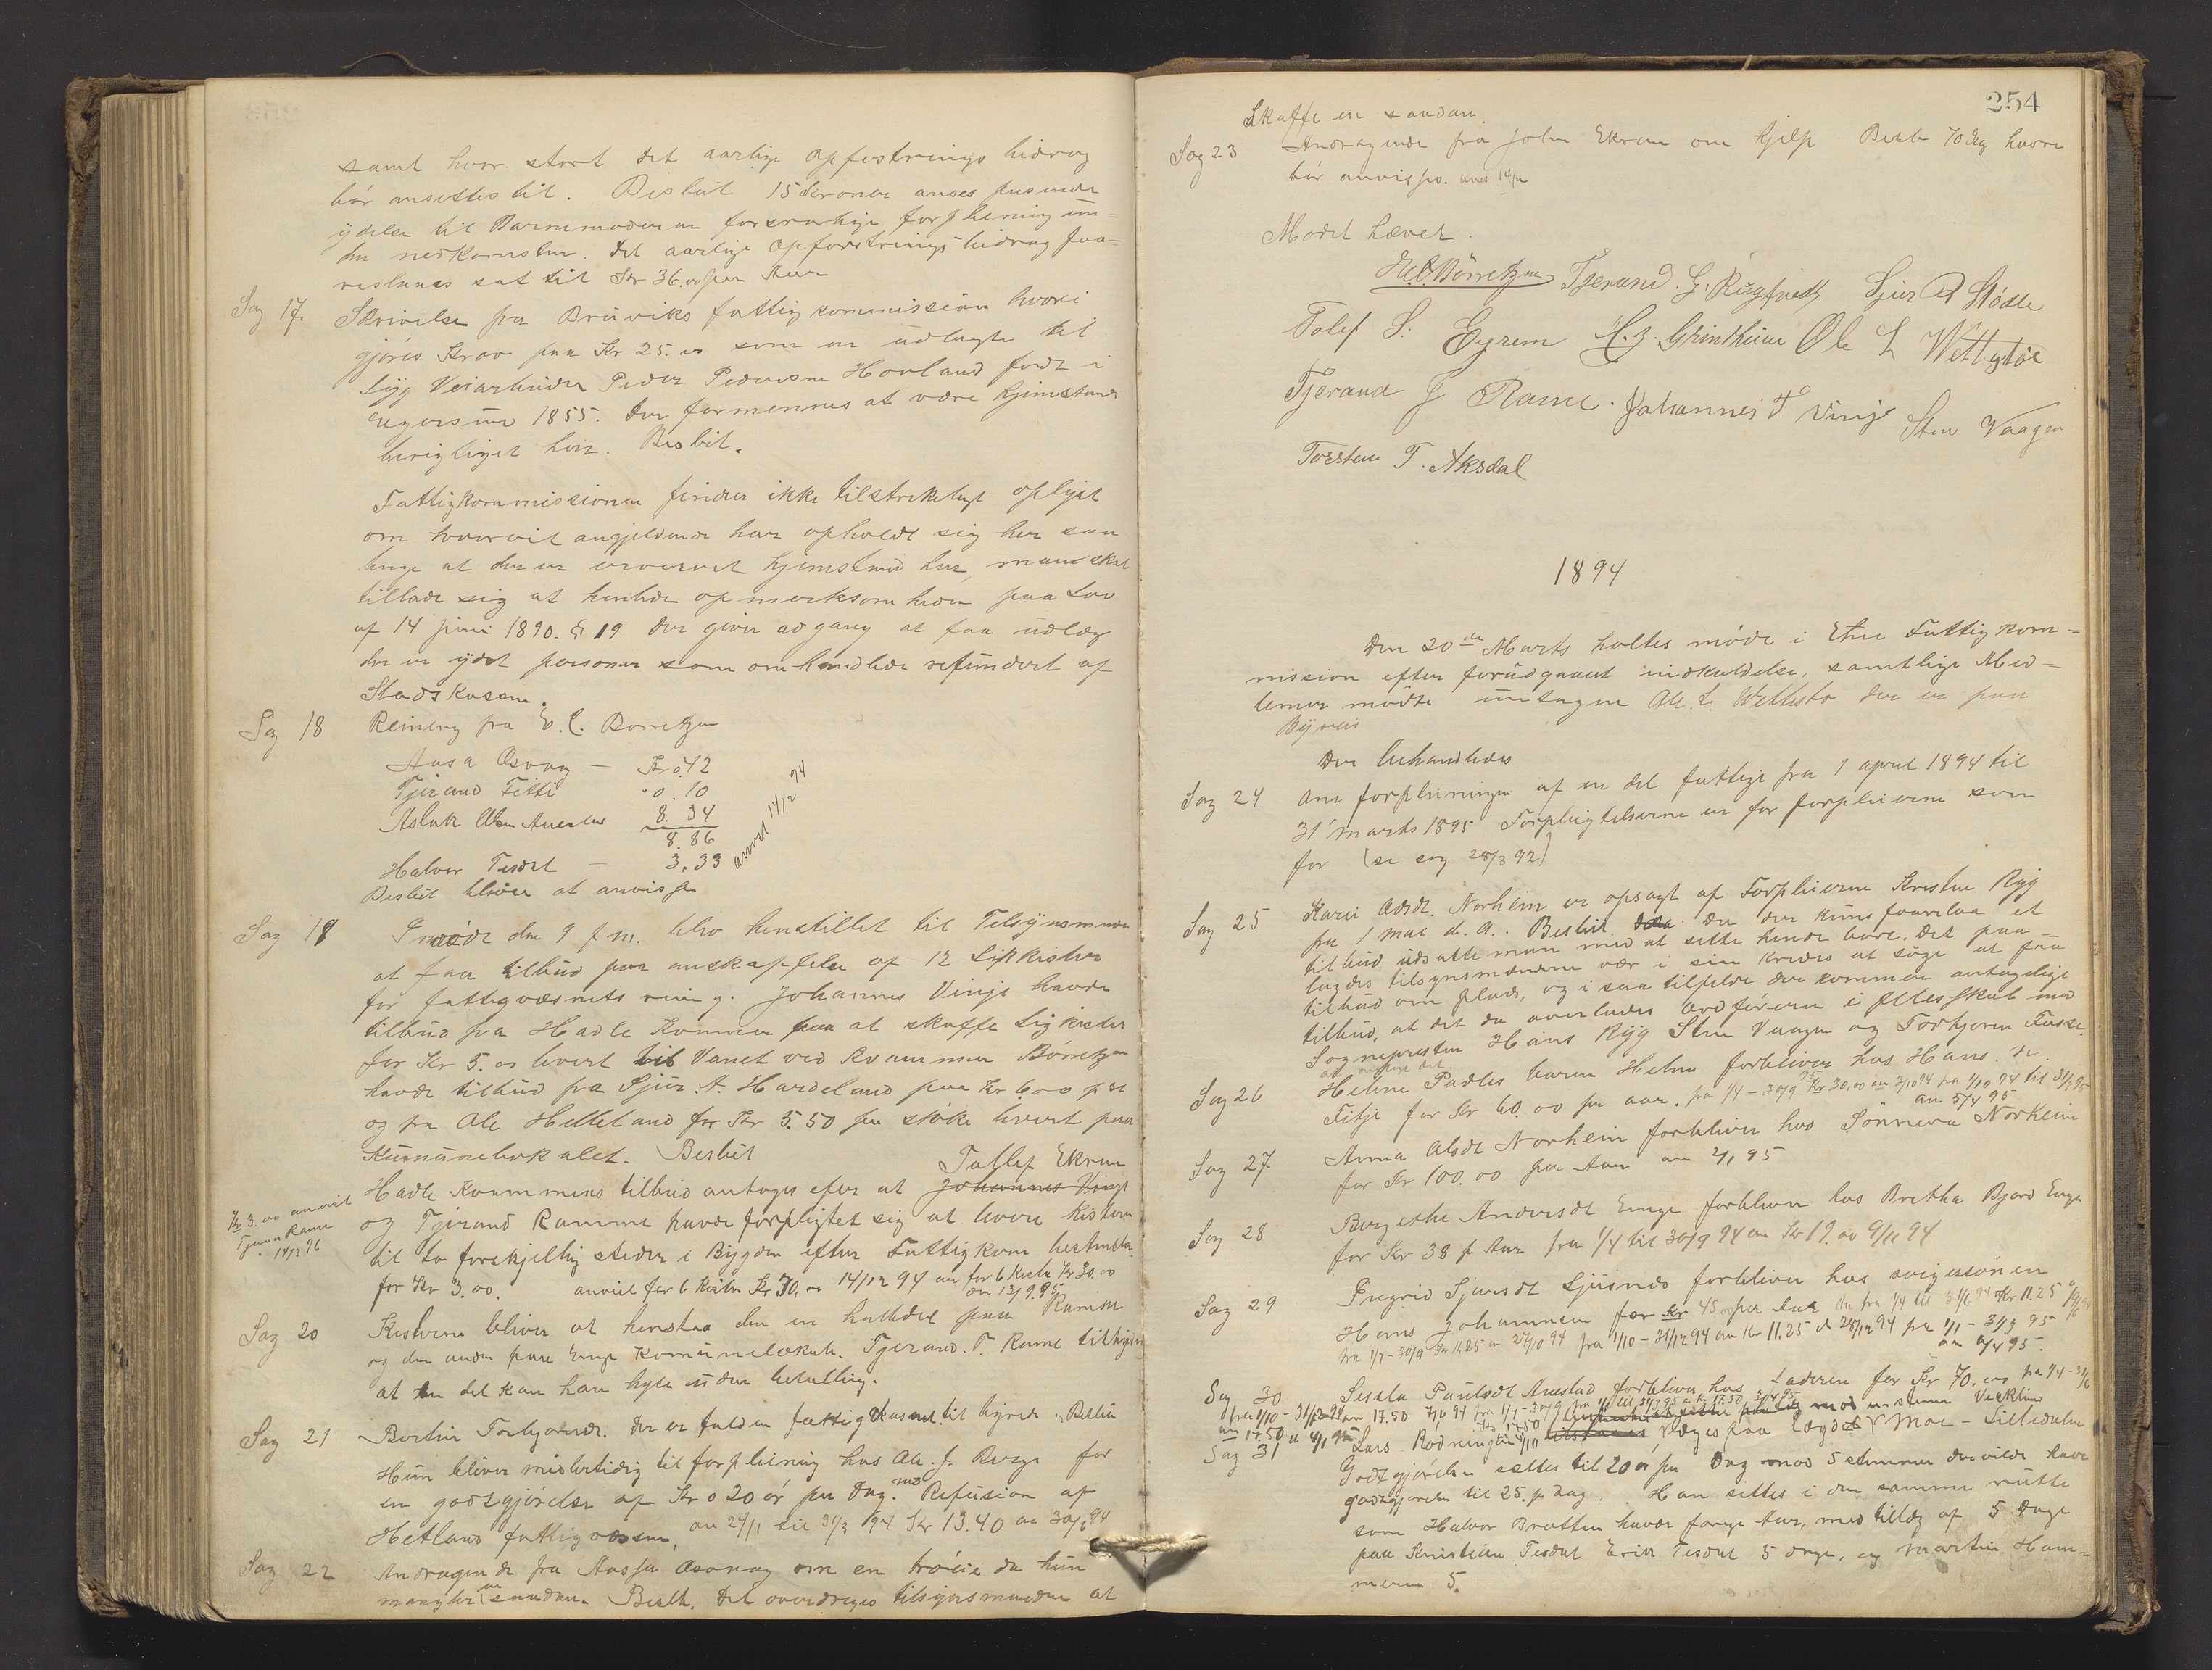 samt hvor stort det aarlige opfostrings bidrag
bör ansettes til. Beslut 15 Kroner anses pasende
ydelse til Barnemoderen forsvarlige forpleining un=
der nedkomsten. Det aarlige opfostringsbidrag foa=
reslaaes sat til Kr 36.00 per Aar
Sag 17 Skrivelse fra Bruviks fattigkommission hvori
gjöres Krav paa Kr 25.00 som er udlagte til
Syg Veiarbeider Peder Pedersen Hovland født i
1855. Der formennes at være hjemstavns
berigtiget her. Beslut.
Fattigkommissionen finder ikke tilstrekelegt oplyst
om hvorvit angjeldende har opholdt sig her saa
lenge at der er erværvet hjemstavn her, man skal
tillade sig at henlede opmerksomheden paa Lov
af 14 juni 1890. § 19 der giver adgang at faa udlæg
der er ydet personer som omhandlede refundert af
Stadskassen.
Sag 18 Reining fra E. C. Borretzen
Aasa Osvaag — Kr 0.42
Tjerand Fitti " 0.10
Aslak 8.34
8.86
Halvor Tesdal — 3.33
anvist 14/12 94
Beslut bliver at anvisse
Sag 19 I møde den 9 f. m. blev henstillet til Tilsynsmænde
at faa tilbud paa anskaffelse af 12 Ligkister
for fattigvæsnets rening. Johannes Vinje havde
tilbud fra Hadle Kvammen paa at skaffe Ligkister
for Kr 5.00 levert til Vanet ved Kvammen Börretzen
havde tilbud fra Sjur A. Hardeland paa Kr 6.00 pst
og fra Ole Helleland for Kr 5.50 per støke levert paa
Kumunelokalet. Beslut
Hadle Kvammens tilbud antages efter at Johannes Vinje Tollef Ekren
og Tjerand Ramme havde forpligtet sig at levere Kisterne
til to forskjellig steder i Bygden efter Fattigkom bestemelse
for Kr 3.00. anvist for 6 Kister Kr 30.00 14/12 94 an for 6 Kister Kr 30.00
an 13/9.95
Kr 3.00 anvist
Tjeran Rame
14/12 96
Sag 20 Kisterne bliver at henstaa den en halvdel paa Ramme
og den anden paa Enge Komunelokale. Tjerand. T. Rame tilbyder
at en del kan han hyse uden betalling.
Sag 21 Bertine Torbjörnsdr. der er falden fattigkassend til byrde. Beslut
Hun bliver midlertidig til forpleining hos Ole. J. Berge for
en godtgjörelse af Kr 0 20 ör per Dag. med Refusion af
Hetland fattigvæsen, an 24/11 til 31/3 94 Kr 13.40 an 30/6 94
Sag 22 Andragende fra Aasa Osvaag om en tröie da hun
mangler en saadan. Beslt. Det overdrages tilsynsmanden at
254
Skaffe en saadan.
Sag 23 Andragende fra John Ekren om hjelp Beslt 70 Kg havre
bör anvises. anv 14/12
Mødet hævet.
E. C. Börretzen Tjerand. G. Rügtvedt Sjur A Stódle
Tolef S. Eyrem H. J. Grindheim Ole L Wettestøe
Tjerand J Rame. Johannes T Vinje Sten Vaagen
Torsten T. Aksdal
1894
Den 20de Marts holtes móde i Etne Fattigkom=
mission efter forudgaaet indkaldelse, samtlige Med=
lemer mödte undtagen Ole. L. Wettestø der er paa
Byreis
Der behandledes
Sag 24 Om forpleiningen af en del fattige fra 1 april 1894 til
31' marts 1895 Forpligtelserne er for forpleierne som
for (se sag 28/3 92)
Sag 25 Karie Adsdt. Norheim er opsagt af Forpleierne Kristen Ryg
fra 1 mai d.a. Beslut. Da der kuns foarelaa et
tilbud udsatte man med at sette hende bort. Det paa=
lagdes tilsynsmændene vær i sin kreds at söge at faa
tilbud om plads, og i saa tilfelde der kommer antagelige
tilbud, at det da overlades Ordföreren i fellesskab med
Sognepresten Hans Ryg Sten Vaagen og Torbjoren Fuske.
at avgjøre det
Sag 26 Heline Padles barn Helene forbliver hos Hans. N.
Fitje for Kr 60.00 per aar. fra 1/4 - 30/9 Kr 30.00 an 3/10 94 fra 1/10 94 til 31/3 95
an 5/4 95
Sag 27 Anna Olsdt Norheim forbliver hos Sönneva Norheim
for Kr 100.00 per Aar an 2/1 95
Sag 28 Bergithe Andersdt Enge forbliver hos Bretha Bjord Enge
for Kr 38 p Aar fra 1/4 til 30/9 94 an Kr 19.00 9/11 94
Sag 29 Ingrid Sjursdt Ljusnes forbliver hos svigersönen
Hans Johannesen for Kr 45.00 per Aar an fra 1/4 til 31/6 94 Kr 11.25
fra 1/7-30/9 Kr 11.25 an 27/10 94 fra 1/10 - 31/12 94 an Kr 11.25 d 28/12 94 fra 1/1 - 31/3 95
an 4/4 95.
Sag 30 Sessla Paulsdt Anestad forbliver hos Laderen for Kr 70.00 fra 1/4-31/6
fra 1/10 - 31/12 94 an 17.50
an 17.50 d 4/1 95
Sag 31 Lars Rödning lægges paa Lægd Moe - Lilledalen
Godtgjörelsen sættes til 20 ør per Dag mod 5 stemmer der vilde have
godtgjörelsen til 25. p dag. Han settes i den samme rutte
som Halvor Bratten havde forige Aar, med tillæg af 5 Dage
paa Kristian Tesdal Erik Tesdal 5 dage, og Martin Ham=
meren 5.